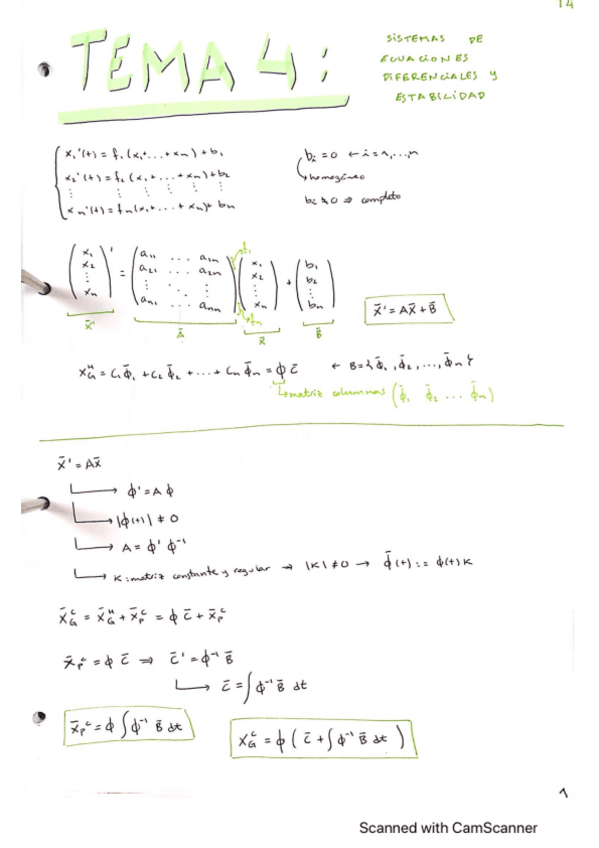 14
TEMA 4:
SISTEMAS DE
ECUACIONES
DIFERENCIALES Y
ESTABILIDAD
x₁'(t) = f₁(x₁+...+xₙ)+b₁
x₂'(t) = f₂(x₁+...+xₙ)+b₂
⋮ ⋮ ⋮ ⋮ ⋮ ⋮
xₙ'(t) = fₙ(x₁+...+xₙ)+bₙ
bᵢ = 0 ← i = 1,...,n
↳ homogéneo
bᵢ ≠ 0 ⇒ completo
(x₁ x₂ ⋮ xₙ)' = (a₁₁ ... a₁ₙ a₂₁ ... a₂ₙ ⋮ ⋱ ⋮ aₙ₁ ... aₙₙ) (x₁ x₂ ⋮ xₙ) + (b₁ b₂ ⋮ bₙ)
f₁
fₙ
x̄' Ā x̄ B̄
x̄' = Ax̄ + B̄
x_G^H = C₁ϕ̄₁ + C₂ϕ̄₂ + ... + Cₙϕ̄ₙ = ϕ c̄ ← B = {ϕ̄₁, ϕ̄₂, ..., ϕ̄ₙ}
↳ matriz columnas (ϕ̄₁ ϕ̄₂ ... ϕ̄ₙ)
x̄' = Ax̄
↳ ϕ' = A ϕ
↳ |ϕ(t)| ≠ 0
↳ A = ϕ' ϕ⁻¹
↳ K: matriz constante y regular → |K| ≠ 0 → ϕ̄(t) := ϕ(t)K
x̄_G^C = x̄_G^H + x̄_P^C = ϕ c̄ + x̄_P^C
x̄_P^C = ϕ c̄ ⇒ c̄' = ϕ⁻¹ B̄
↳ c̄ = ∫ ϕ⁻¹ B̄ dt
x̄_P^C = ϕ ∫ ϕ⁻¹ B̄ dt
x_G^C = ϕ ( c̄ + ∫ ϕ⁻¹ B̄ dt )
1
Scanned with CamScanner